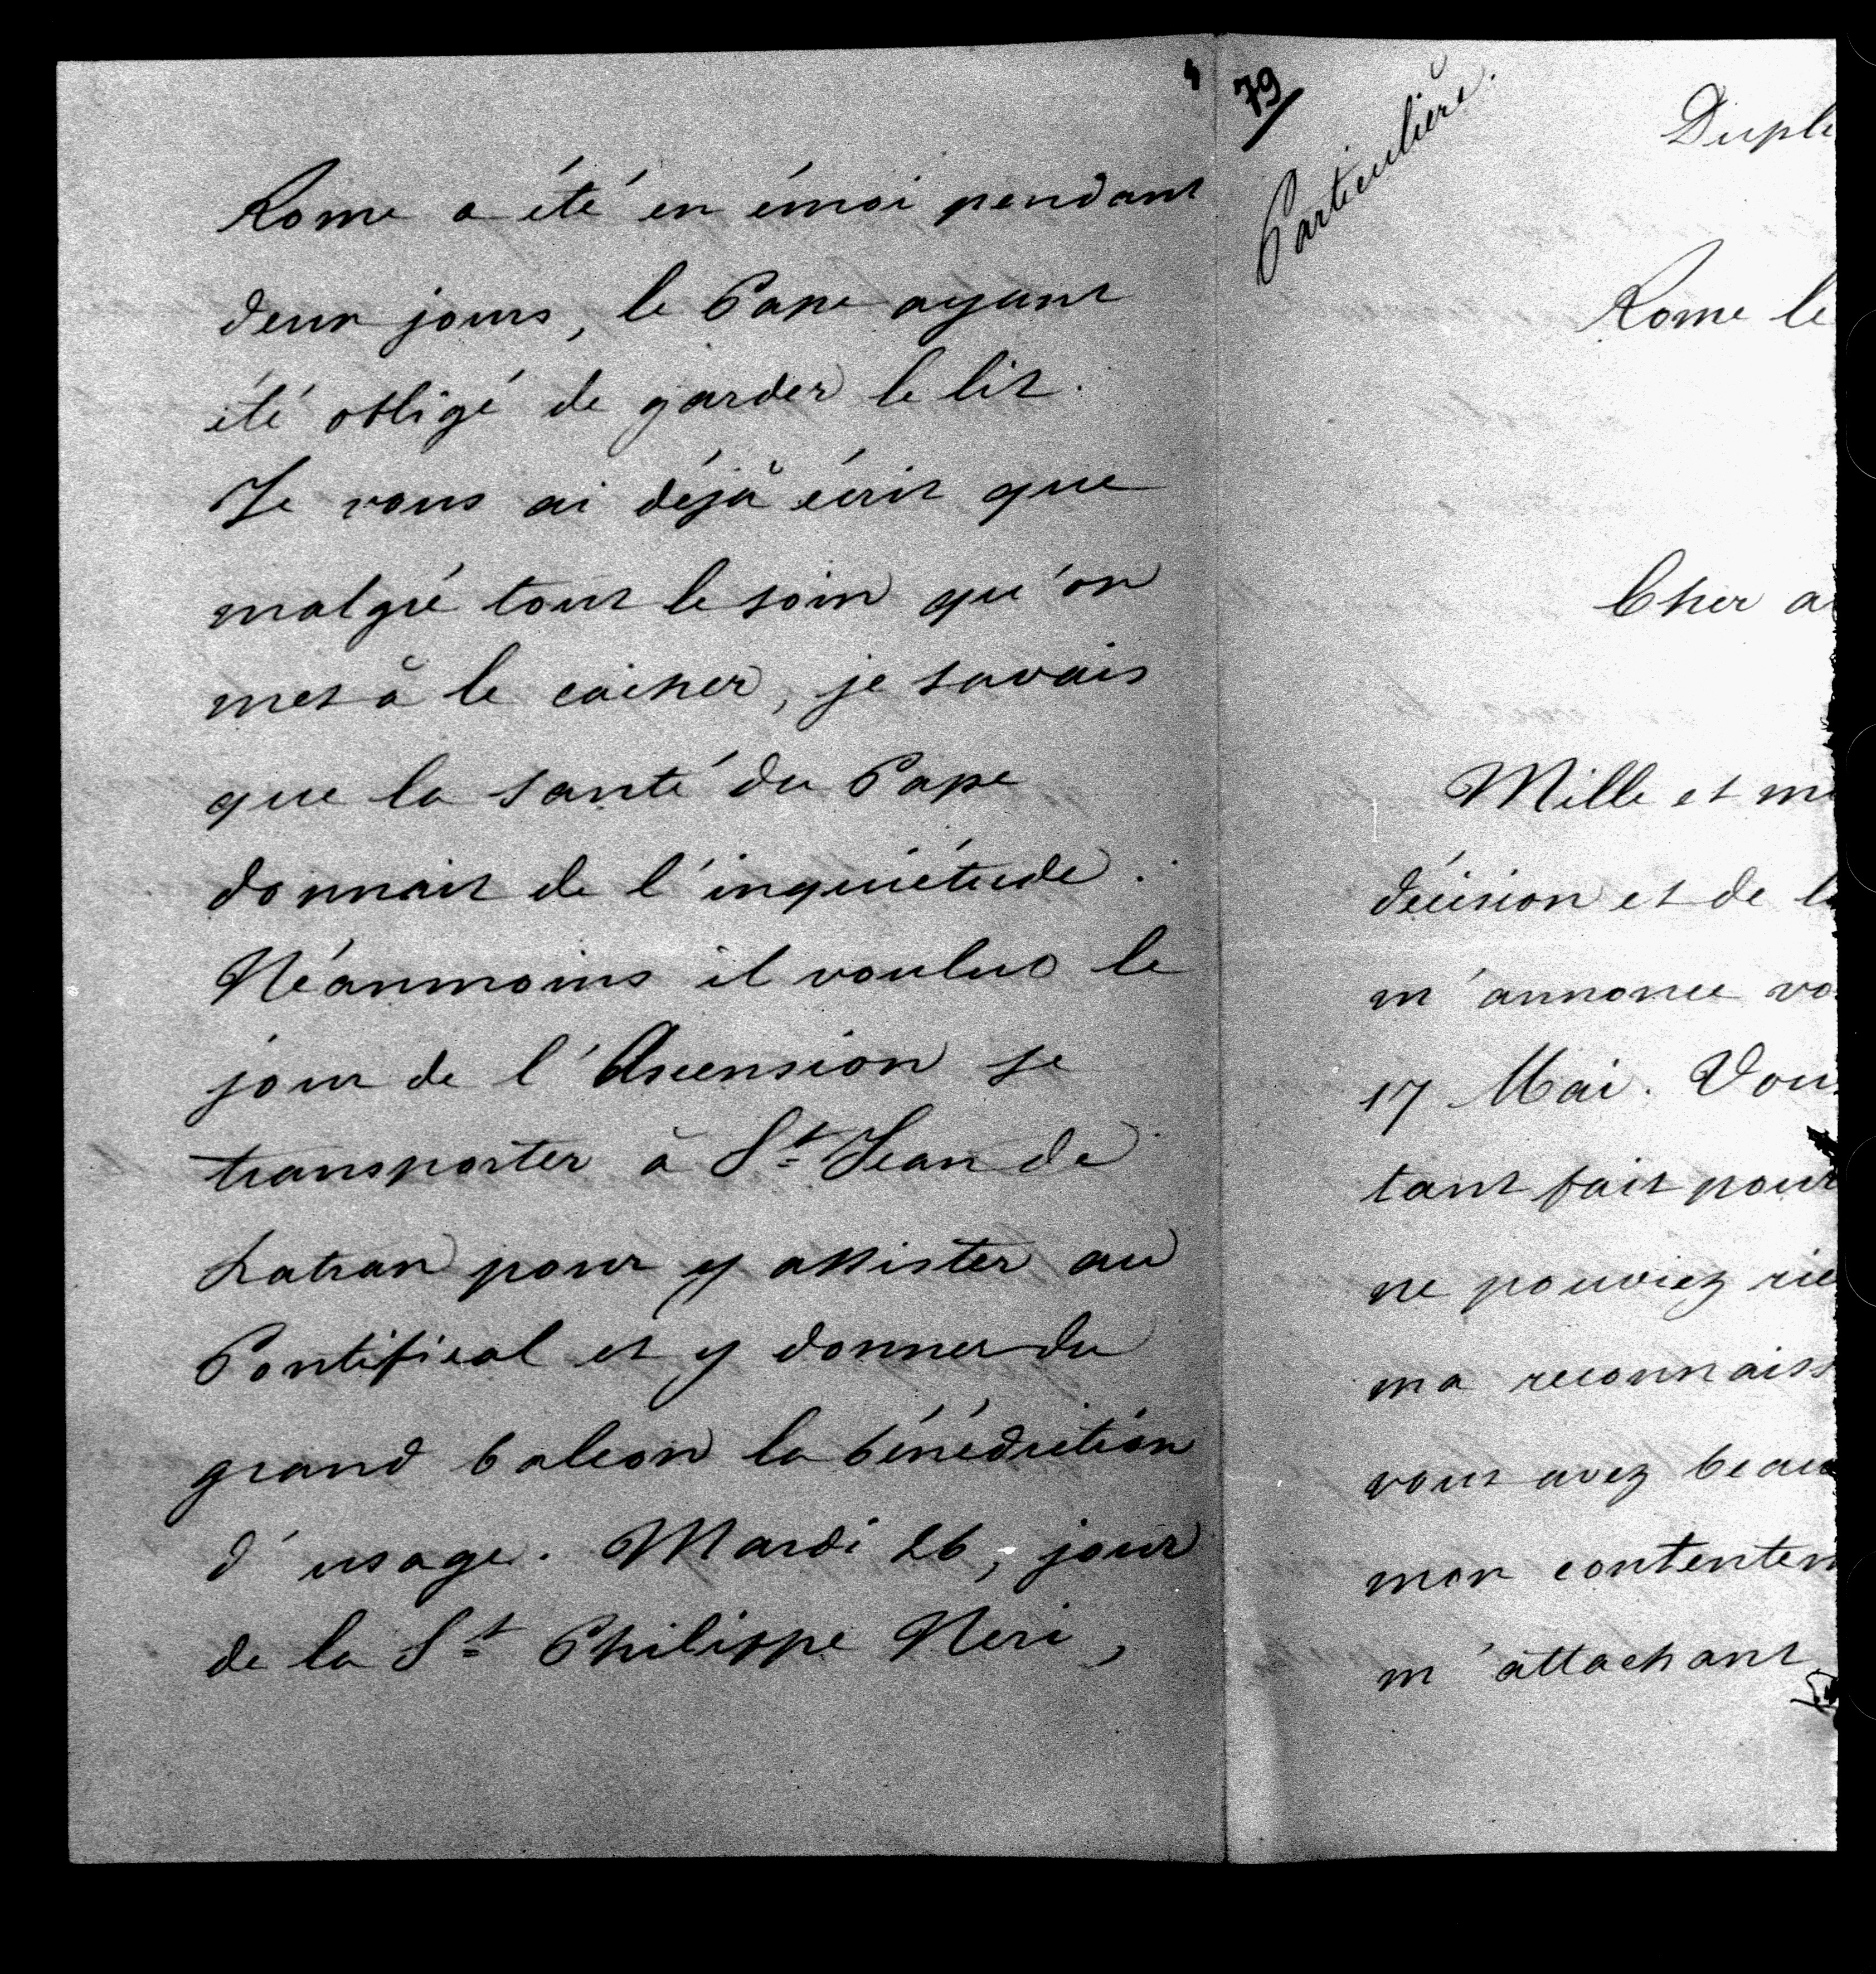 4
Rome a été en émoi pendant
deux jours, le Pape ayant
été obligé de garder le lit.
Je vous ai déjà écrit que
malgré tout le soin qu'on
met à le cacher, je savais
que la santé du Pape
donnait de l'inquiétude.
Néanmoins il voulut le
jour de l'Ascension se
transporter à St Jean de
Latran pour y assister au
Pontifical et y donner du
grand balcon la bénédiction
d'usage. Mardi 26, jour
de la St Philippe Neri,
79
Particulière.
Dupl
Rome le
Cher a
Mille et mi
décision et de l
m'annonce vo
17 Mai. Vou
tant fait pour
ne pouviez rie
ma reconnaiss
vous avez beau
mon contentem
m'attachant